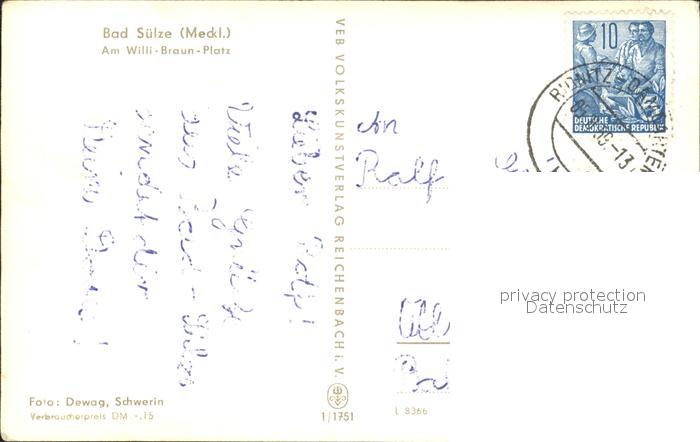 Bad Sülze (Meckl.)
Am Willi-Braun-Platz
Lieber Ralf!
Viele Grüße
aus Bad-Sülze
sendet dir
Deine
Foto: Dewag, Schwerin
Verbraucherpreis DM -.15
VEB VOLKSKUNSTVERLAG REICHENBACH i. V.
1/1751
L 8366
10
DEUTSCHE
DEMOKRATISCHE REPUBLIK
RIBNITZ-DAMGARTEN
-13
An
Ralf
privacy protection
Datenschutz